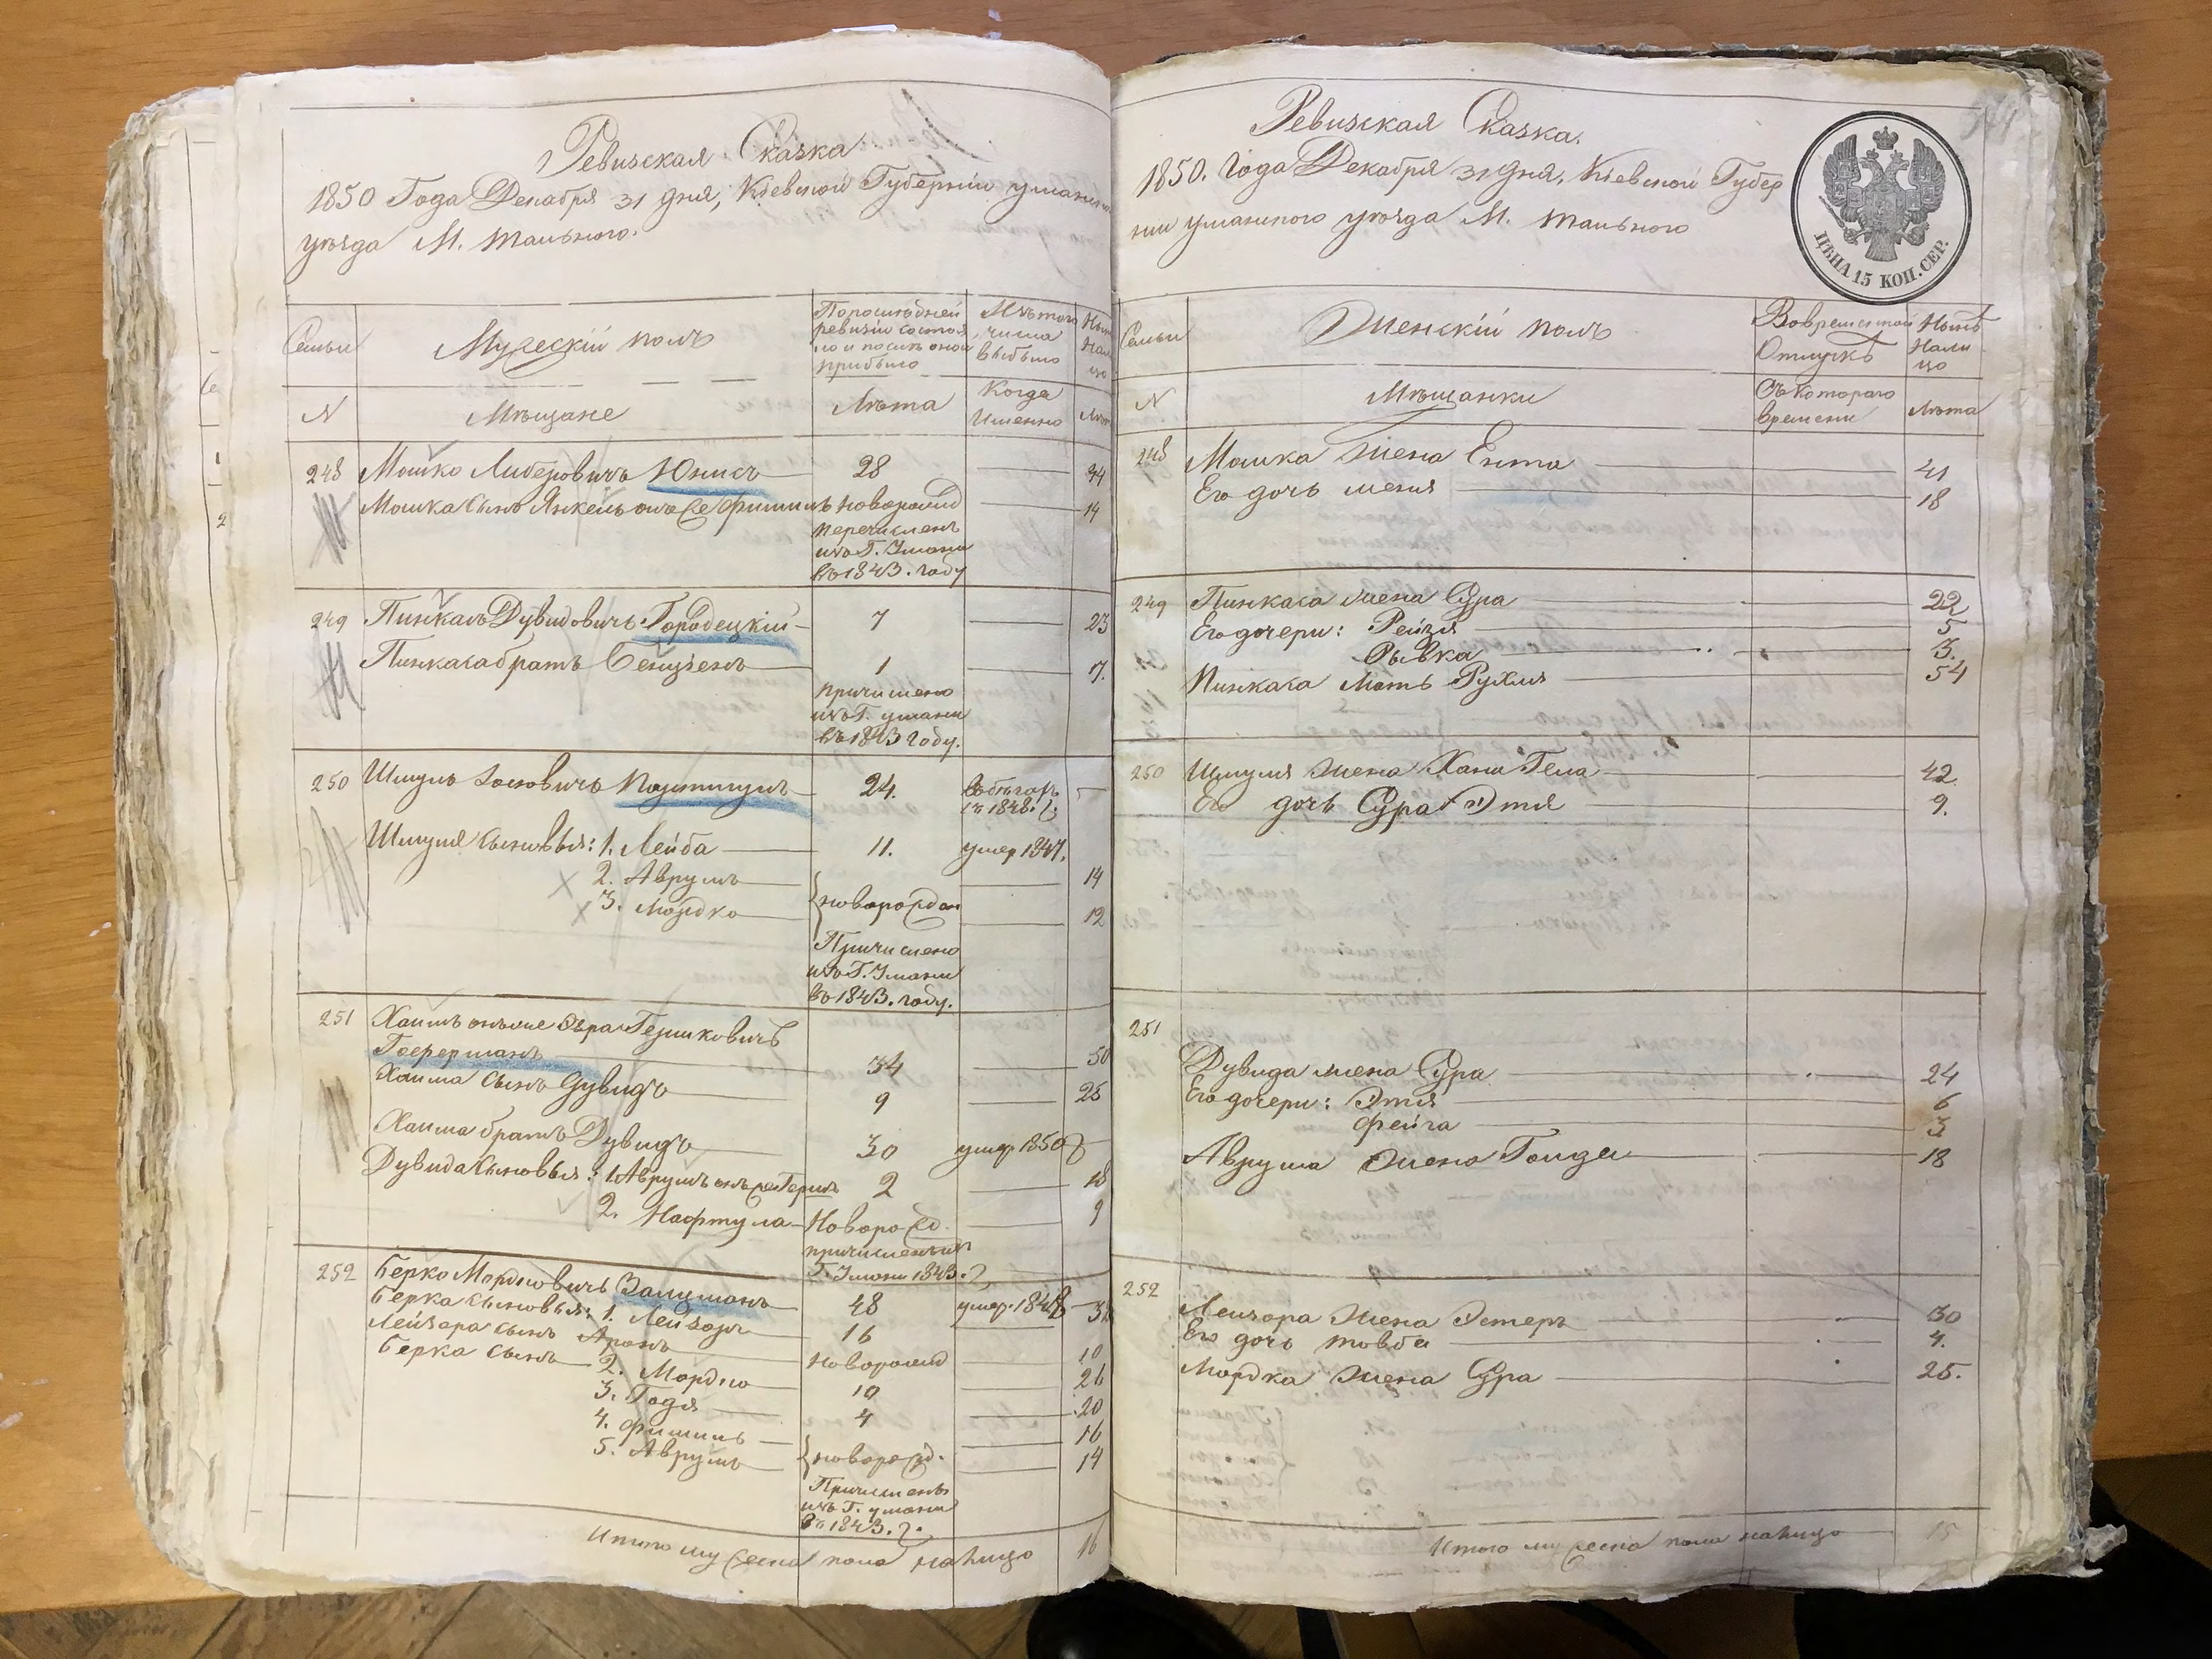 Ревизская Сказка
1850 Года Декабря 31 дня, Кіевской Губерніи уманского
уѣзда М. Тального.
Семьи
Мужескій полъ
По последней ревизіи состояло и после оной прибыло
Изъ того числа выбыло
Ныне на лицо
N
Мѣщане
Лѣта
Когда Именно
Лѣта
248 Мошко Либеровичъ Юнисъ 28 34
Мошка сынъ Янкель онъ же Фишиль новорожд 14
перечисленъ
изъ Г. Умани
въ 1843. году
249 Пинкасъ Дувидовичъ Городецкій 7 23
Пинкаса братъ Бенціенъ 1 17.
причислено
изъ Г. умани
въ 1843 году.
250 Шмуль Іосьовичъ 24. въ 1848. г.
Шмуля сыновья: 1. Лейба 11. умер 1847.
2. Аврумъ 14
3. Мордко новорожден 12
Причислено
изъ Г. Умани
въ 1843. году.
251 Хаимъ онъ же Сѣра Гершковичъ
Гоферманъ 34 50
Хаима сынъ Дувидъ 9 25
Хаима братъ Дувидъ 30 умер 1850 г
Дувида сыновья: 1. Аврумъ онъ же Гершъ 2 18
2. Нафтула Новорожд. 9
причисленъ изъ
Г. Умани 1843. г
252 Берко Мордковичъ Залцманъ 48 умер. 1848
Берка сыновья: 1. Лейзоръ 16 32
Лейзора сынъ Аронъ Новорожд 10
Берка сынъ 2. Мордко 10 26
3. Годя 4 20
4. Фишиль 16
5. Аврумъ новорожд. 14
Причисленъ
изъ Г. умани
въ 1843. г.
Итого мужеска пола на лицо 16
Ревизская Сказка.
1850. Года Декабря 31 дня, Кіевской Губер
ніи уманского уѣзда М. Тального
ЦѢНА 15 КОП. СЕР.
Семьи
Женскій полъ
Во временной Отлучкѣ
Нынѣ На лицо
N
Мѣщанки
Съ котораго времени
Лѣта
248 Мошка жена Ента 41
Его дочь Шейня 18
249 Пинкаса жена Сура 22
Его дочери: Рейзя 5
Рывка 3.
Пинкаса мать Рухля 54
250 Шмуля жена Хана Гела 42
Его дочь Сура Этя 9.
251
Дувида жена Сура 24
Его дочери: Этя 6
Фейга 3
Аврума жена Голда 18
252
Лейзора жена Эстеръ 30
Его дочь товба 4.
Мордка жена Сура 25.
Итого женска пола на лицо 15